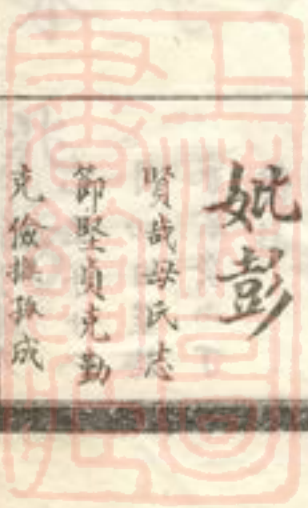 妣彭
賢哉母氏志
節堅貞克勤
克儉撫孤成